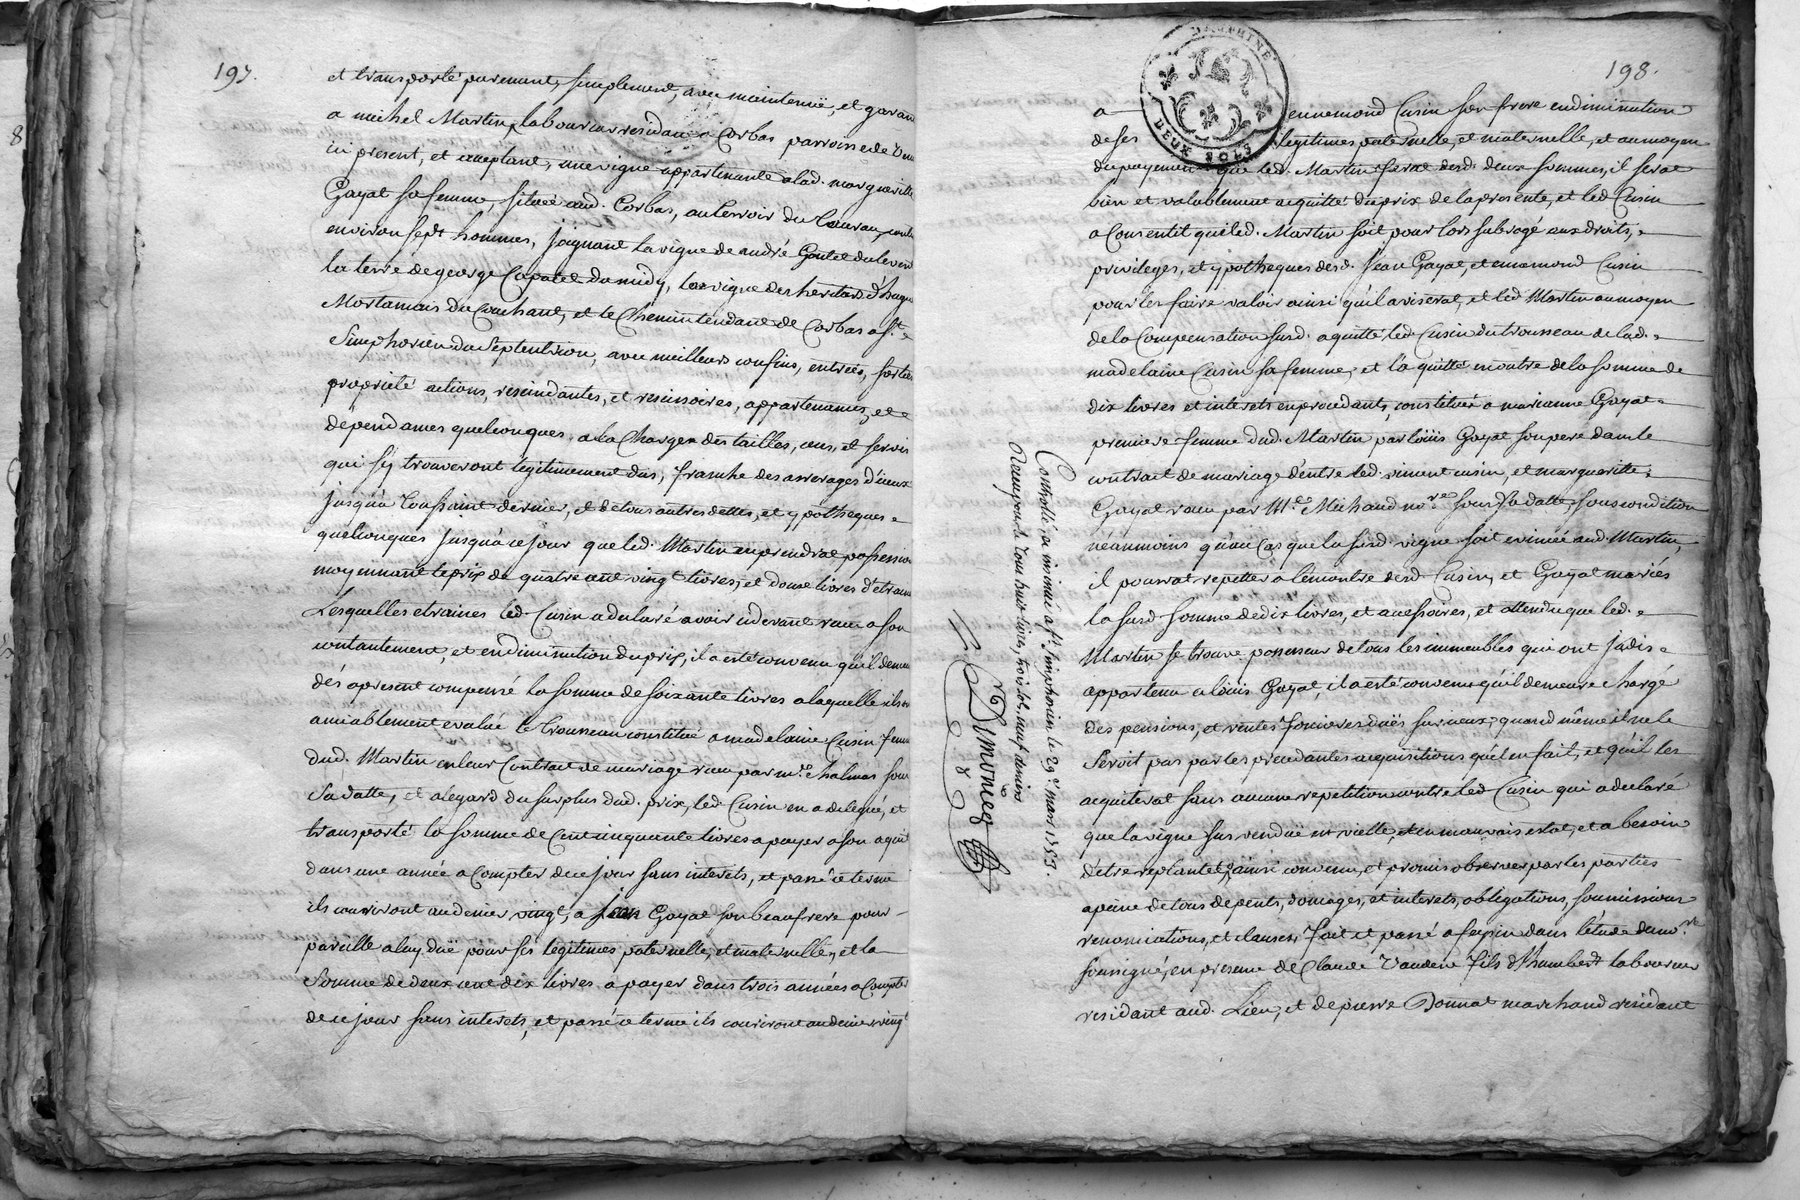 197.
et transporté purement, simplement, avec maintenüe, et garan
a michel Martin laboureur residant a Corbas parroisse de
icy present, et acceptant, une vigne appartenante a lad. margueritte
Gayat sa femme, sitüee aud. Corbas, au terroir du contt
environ sept hommes, joignant la vigne de andré Goutet du levant
la terre de george du midy, la vigne des heritiers d'hugue
Mortamais du Couchant, et le Chemin tendant de Corbas a st. =
Simphorien du Septentrion, avec meilleurs confins, entrées, sorties
propriété actions, rescindantes, et rescissoires, appartenances, et =
dépendances quelconques, a la Charge des tailles, cens, et servis
qui s'y trouveront legitimement dus, franche des arrerages d'iceux
jusqu'a toussaint dernier, et de tous autres dettes, et ypotheques =
quelconques jusqu'a ce jour que led. Martin en prendrat possession
moyennant le prix de quatre cent vingt livres, et douse livres d'etraine
Lesquelles etraines led. Cusin a declaré avoir cidevant receu a son
contantement, et en diminution du prix, il a esté convenu qu'il demeure
dés apresent compensé la somme de soixante livres a laquelle ils ont
amiablement evalué le trousseau constitué a madelaine Cusin femme
dud. Martin en leur Contract de mariage receu par me. Chalmas sous
sa datte, et a legard du surplus dud. prix, led. Cusin en a delegué, et
transporté la somme de Cent cinquante livres a payer a son aquit
dans une année a Compter de ce jour sans interets, et passé ce terme
ils couriront au denier vingt, a jean Gayat son beaufrere pour =
pareille a luy düe pour ses legitimes paternelle, et maternelle, et la
Somme de deux cent dix livres a payer dans trois années a Compter
de ce jour sans interets, et passé ce terme ils couriront au denier vingt
198.
DAUPHINE
DEUX SOLS
a ennemond Cusin son frere en diminution
de ses legitimes paternelle, et maternelle, et au moyen
du payement que led. Martin ferat desd. deux sommes, il serat
bien et valablement acquitté du prix de la presente, et led. Cusin
a Consentit que led. Martin soit pour lors subrogé aux droits, =
privileges, et ypotheques desd. Jean Gayat, et ennemond Cusin
pour les faire valoir ainsi qu'il aviserat, et led. Martin au moyen
de la Compensation susd. a quitté led. Cusin du trousseau de lad. =
madelaine Cusin sa femme, et l'a quitté en outre de la somme de
dix livres et interets en procedants, constituée a marianne Gayat =
premiere femme dud. Martin par loüis Gayat son pere dans le
contrait de mariage d'entre led. vincent cusin, et margueritte =
Gayat receu par Me. Michaud nore. sous sa datte, sous condition
néanmoins qu'au Cas que la susd. vigne soit evincée aud. Martin,
il pourrat repetter a l'encontre desd. Cusin, et Gayat mariés
la susd. somme de dix livres, et accessoires, et attendu que led. =
Martin se trouve possesseur de tous les immeubles qui ont jadis =
appartenu a loüis Gayat il a esté convenu qu'il demeure chargé
des pensions, et rentes foncieres duës sur iceux, quand même il ne le
Seroit pas par les precedantes acquisitions qu'il en fait, et qu'il les
acquiterat sans aucune repetition contre led. Cusin qui a declaré
que la vigne sus vendüe est vielle, et en mauvais estat, et a besoin
d'etre replantée, ainsi convenu, et promis observer par les parties
a peine de tous depents, domages, et interets, obligations, soumissions
renonciations, et clauses, fait et passé a fezin dans l'etude du nore.
soussigné, en presence de Claude Vandein fils d'humbert laboureur
residant aud. Lieu, et de pierre Donnat marchand residant
Controllé, et insinué a st. simphorien le 29e. mars 1753.
Receu pour le tout huit livres, trois sols neuf deniers
Simonéd